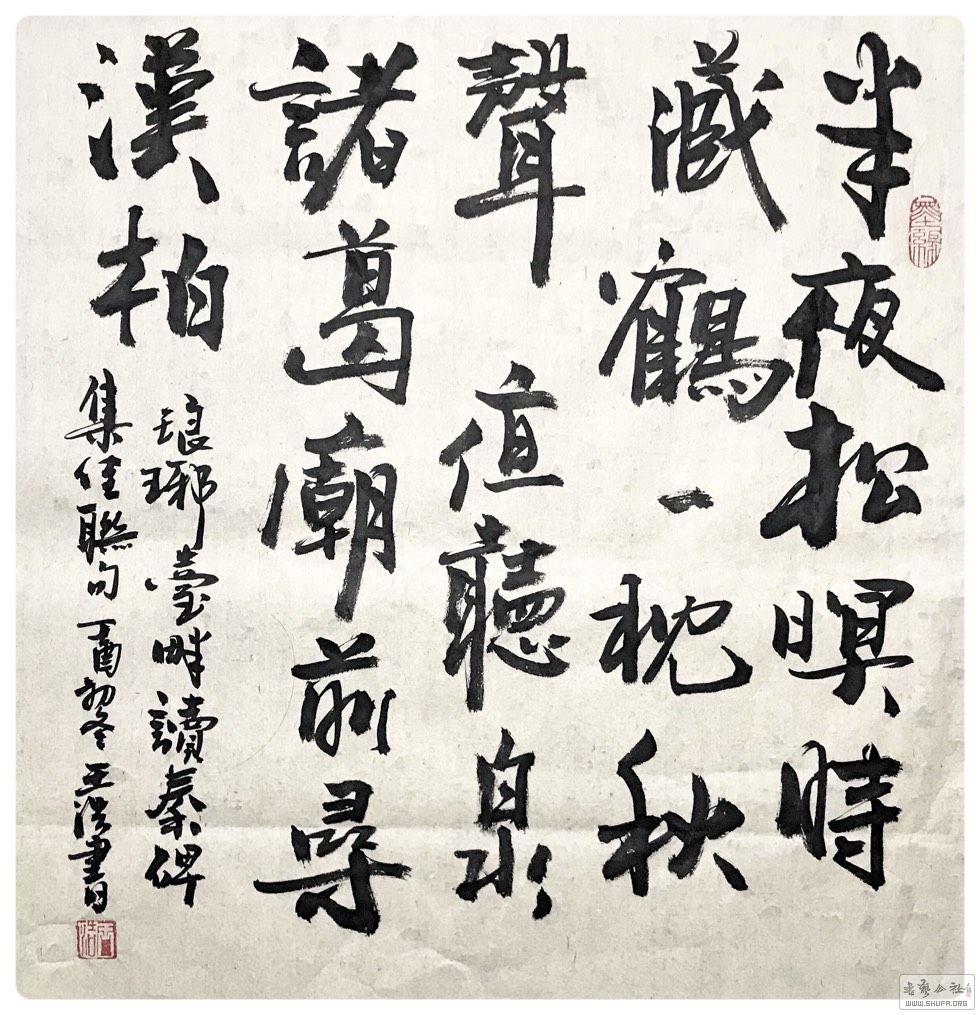 半夜松暝時
藏鶴一枕秋
聲值聽泉
諸葛廟前尋
漢柏
琅琊臺畔讀秦碑
集佳聯句丁酉初冬王浩書
書藝公社
WWW.SHUFA.ORG